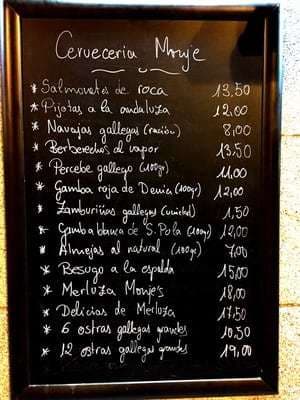 Cervecería Monje
* Salmonetes de roca 13.50
* Pijotas a la andaluza 12,00
* Navajas gallegas (ración) 8,00
* Berberechos al vapor 13.50
* Percebe gallego (100gr) 11,00
* Gamba roja de Denia (100gr) 12,00
* Zamburiñas gallegas (unidad) 1,50
* Gamba blanca de S. Pola (100gr) 12,00
* Almejas al natural (100gr) 7,00
* Besugo a la espalda 15,00
* Merluza Monje's 18,00
* Delicias de Merluza 17,50
* 6 ostras gallegas grandes 10,50
* 12 ostras gallegas grandes 19,00